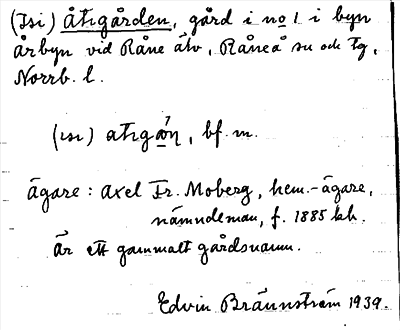 (Isi) Åtigården, gård i no 1 i byn
Årbyn vid Råne älv, Råneå sn och tg,
Norrb. l.
(isi) atigǻn, bf. m.
Ägare: Axel Fr. Moberg, hem.-ägare,
nämndeman, f. 1885 bh.
Är ett gammalt gårdsnamn.
Edvin Brännström 1939.